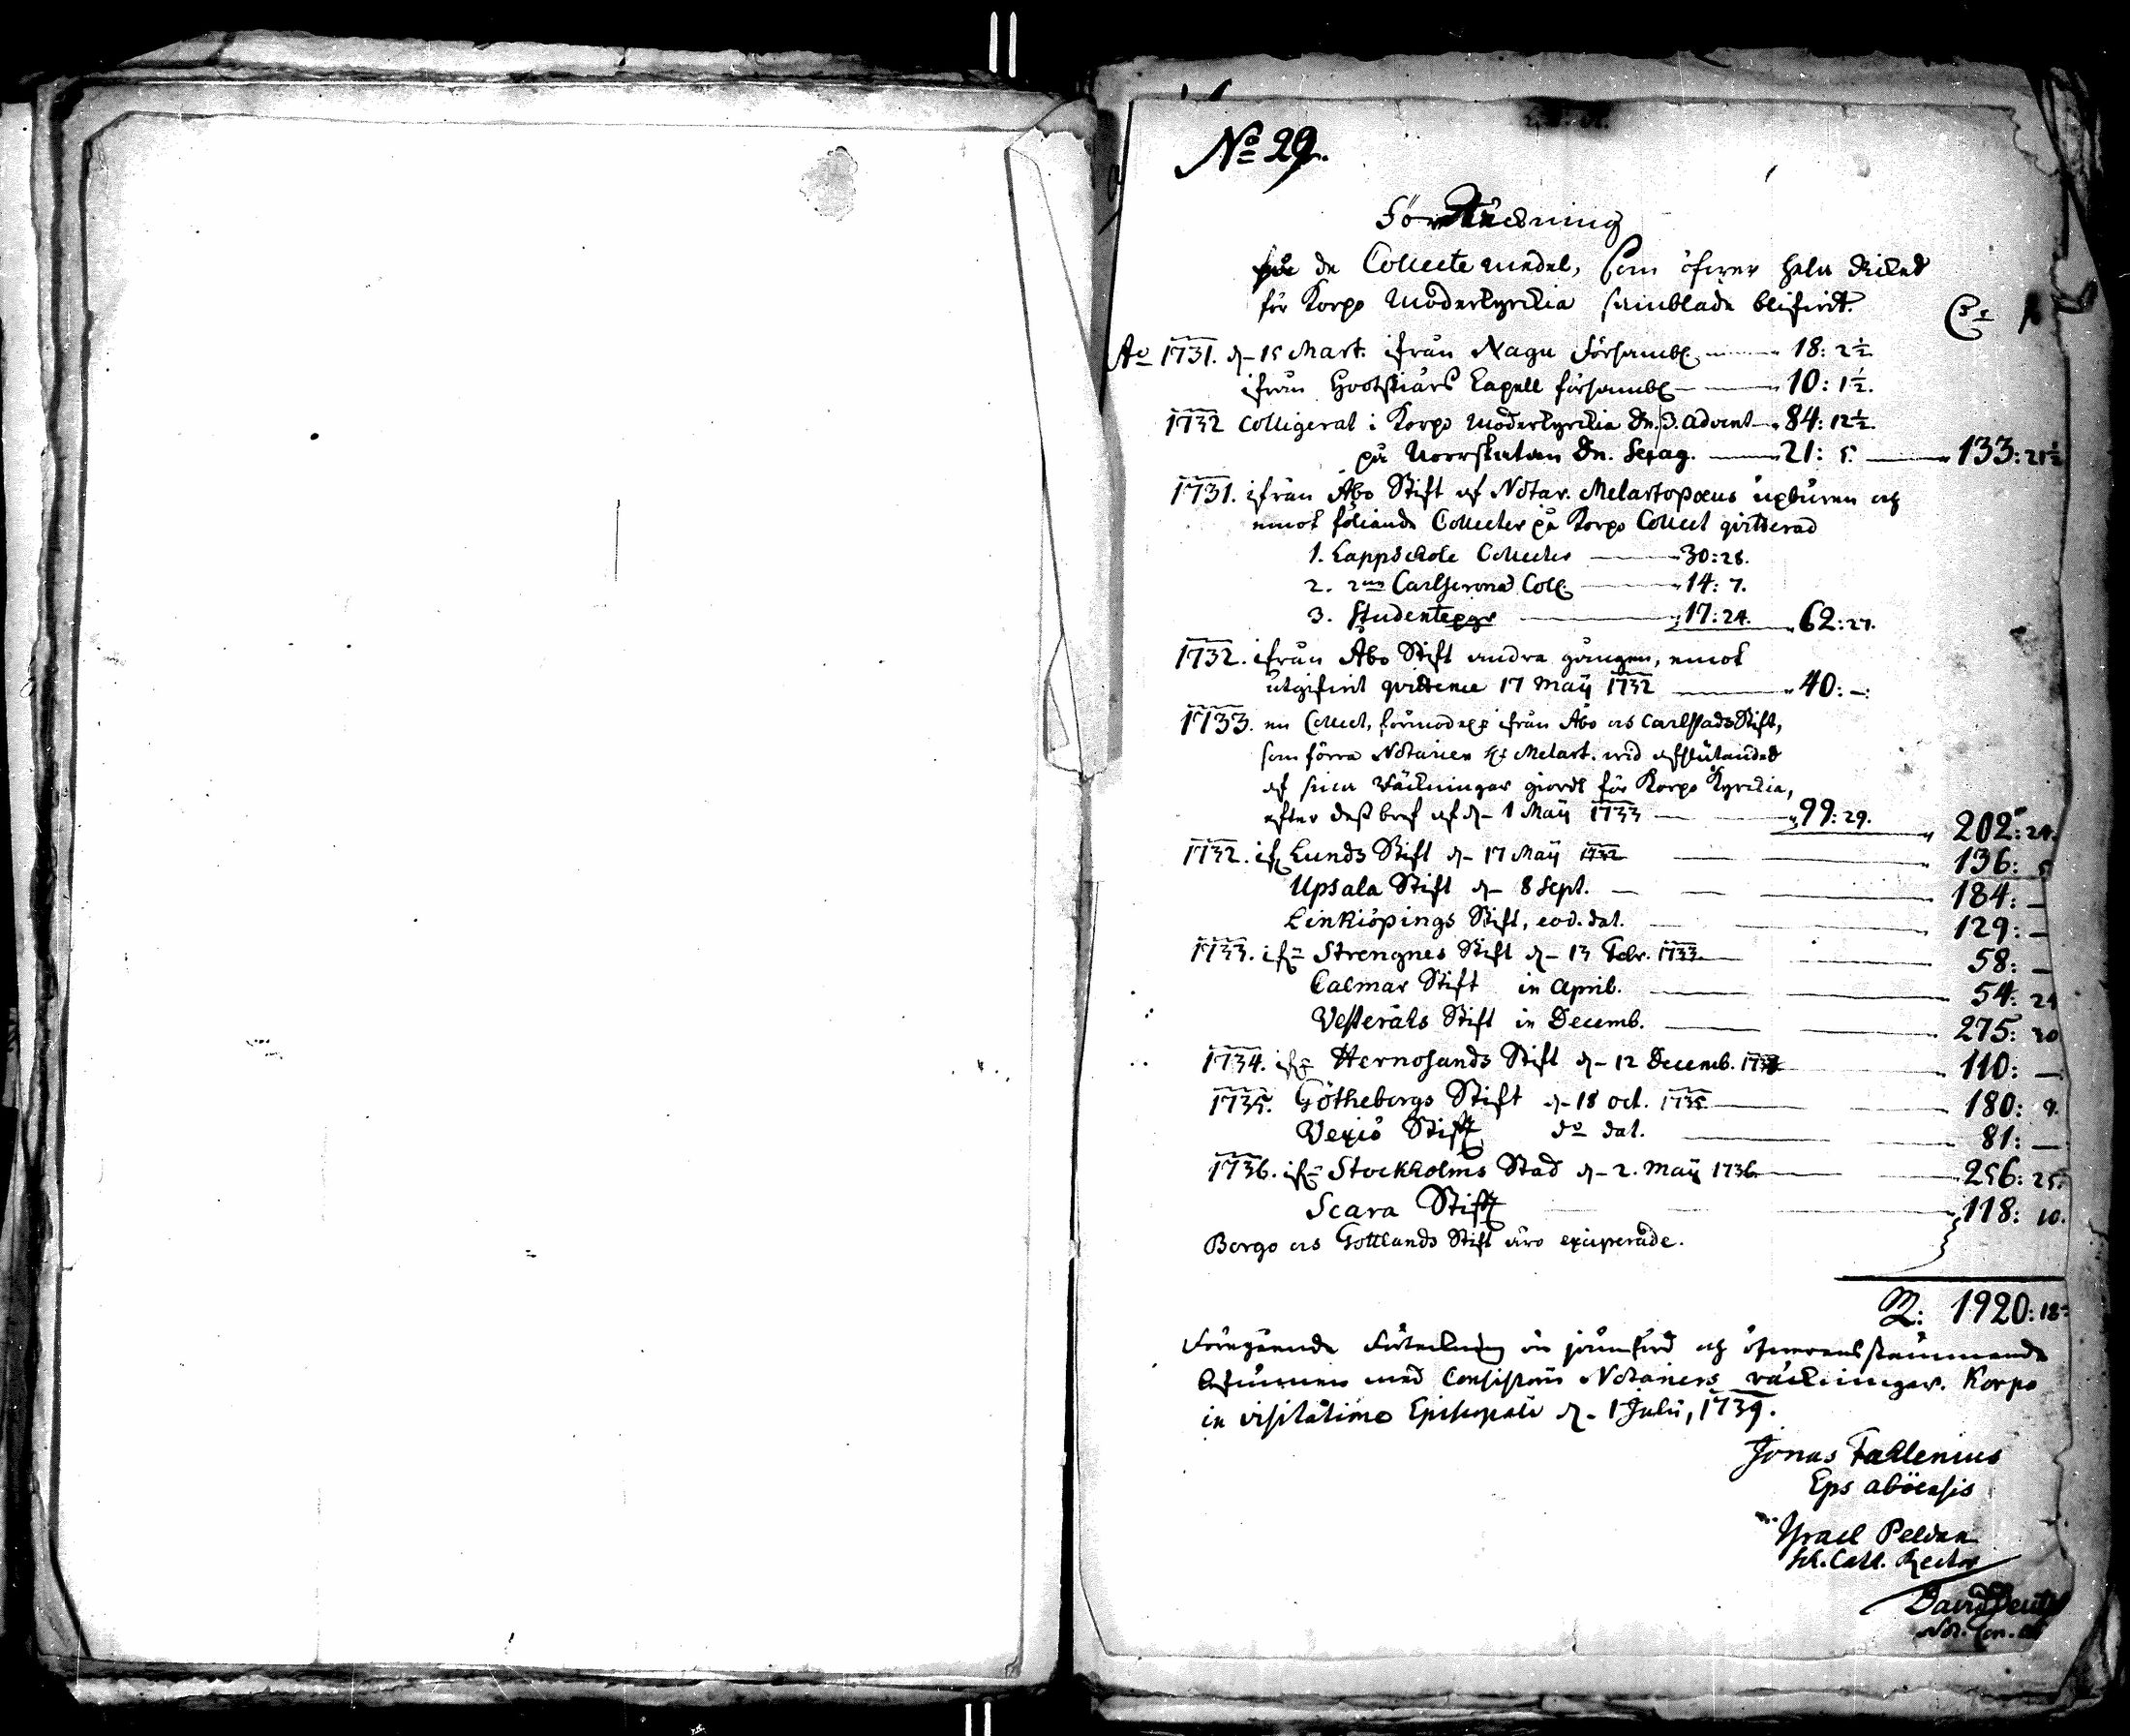 No 29.
Förteckning
på de Collecte medel, som öfwer hela Riket
för Korpo Moderkyrckia samblade blifwit.
Ao 1731. d. 15 Mart. ifrån Nagu Försambl. 18: 2½
ifrån Houtskiärs Capell försambl 10: 1½.
1732 Colligerat i Korpo Moderkyrckia Dn. 3. Advent 84: 12½.
på Norrskatan Dn. Sexag. 21: 5. 133: 21½
1731. ifrån Åbo Stift af Notar. Melartopœus upburen och
emot föliande Collecter på Korpo Collect qvitterad
1. Lappschole Collecter 30: 28.
2. 2ne Carlscrona Coll. 14: 7.
3. Studentepgr 17: 24. 62: 27.
1732. ifrån Åbo Stift andra gången, emot
utgifwit qvittence 17 Maij 1732 40: -:
1733. en Collect, förmodel. ifrån Åbo och Carlstads Stift,
som förra Notarien H: Melart. wid afslutandet
af sina räckningar giordt för Korpo Kyrckia,
efter dess bref af d. 1 Maij 1733 99: 29. 202: 24.
1732. if. Lunds Stift d. 17 Maij 1732 136: 5
Upsala Stift d. 8 Sept. 184: -
Linkiöpings Stift, eod. dat. 129: -
1733. ifr. Strengnes Stift d. 13 Febr. 1733. 58: -
Calmar Stift in April. 54: 24
Vesteråls Stift in Decemb. 275: 30
1734. ifr. Hernosands Stift d. 12 Decemb. 1734 110: -
1735. Götheborgs Stift d. 18 Oct. 1735 180: 9.
Vexiö Stift do dat. 81: -
1736. ifr. Stockholms Stad d. 2. Maij 1736. 256: 25.
Scara Stift 118: 10.
Borgo och Gottlands Stift äro exciperade.
1920: 18
Föregående Förteckning är jämförd och öfwerensstämmande
befunnen med Consistorii Notariens räckningar. Korpo
in visitatione Episcopali d. 1 Julii, 1739.
Jonas Fahlenius
Eps aboensis
Israel Peldan
Sch. Cath. Rector
David Deutsch
Not. Con.